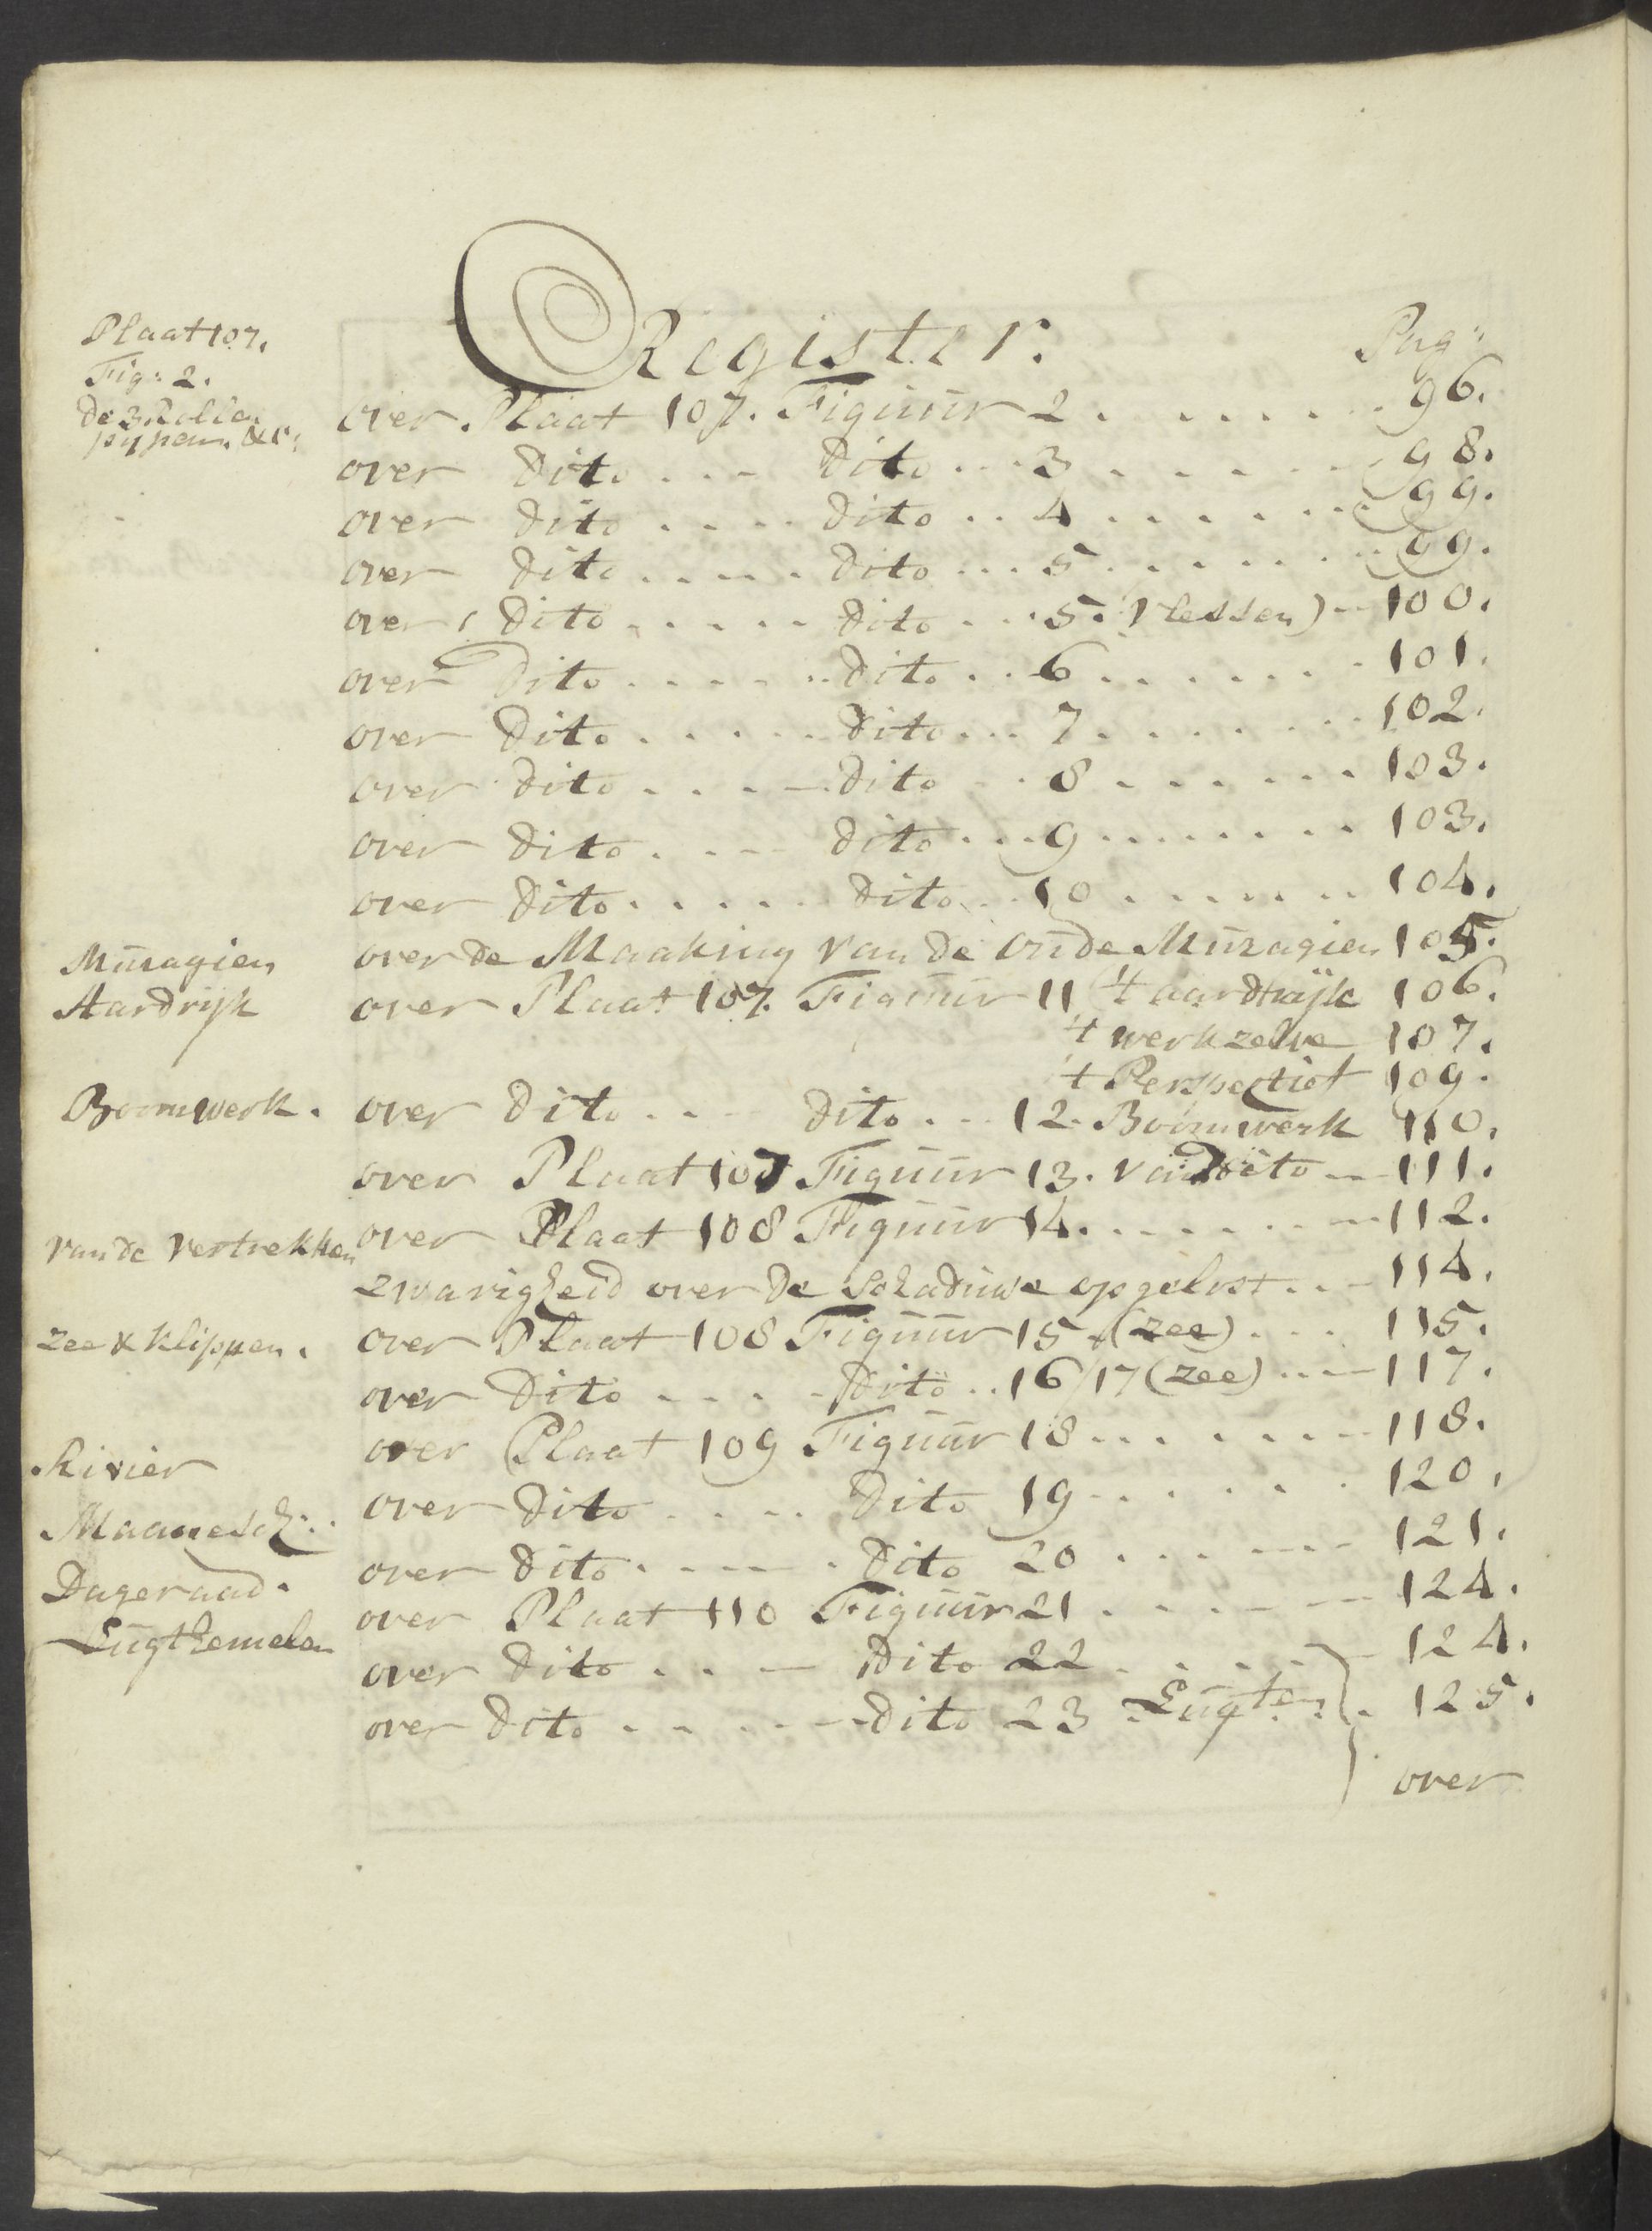 Register.
Pag:
Plaat 107.
Fig: 2.
de 3 Rollen
pypen. &c:
over Plaat 107. Figuur 2 . . . . . . 96.
over dito . . . dito . . . 3 . . . . . . 98.
over dito . . . . dito . . 4 . . . . . . 99.
over dito . . . . . dito . . . 5 . . . . . . 99.
over dito . . . . . dito . . . 5. (lessen) - 100.
over Dito . . . . . . dito . . 6 . . . . . . 101.
over dito . . . . . dito . . . 7 . . . . . . 102.
over dito . . . . dito . . 8 . . . . . . 103.
over dito . . . dito . . . 9 . . . . . . . 103.
over dito . . . . . dito . . 10 . . . . . . . 104.
Muragien
over de Maaking van de oude Muragien 105.
Aardrijk
over Plaat 107. Figuur 11 't aardrijk 106.
't werk zelve 107.
't Perspectief 109.
Boomwerk.
over dito . . . dito . . . 12. Boomwerk 110.
over Plaat 107 Figuur 13. van dito - 111.
over Plaat 108 Figuur 14. . . . . . . 112.
van de vertrekken
zwarigheid over de schaduwe opgelost . . . 114.
zee & klippen.
over Plaat 108 Figuur 15. (zee) . . . 115.
over Dito . . . . dito . . 16/17 (zee) . . . 117.
over Plaat 109 Figuur 18 . . . . . . . 118.
Rivier
over dito . . . . dito 19 . . . . . . 120.
Maanesch:
over dito . . . . . dito 20 . . . . . . 121.
Dageraad.
over Plaat 110 Figuur 21 . . . . . . 124.
Lugthemelen
over dito . . . dito 22 . . . . . 124.
over dito . . . . . dito 23 Lugten . 125.
over